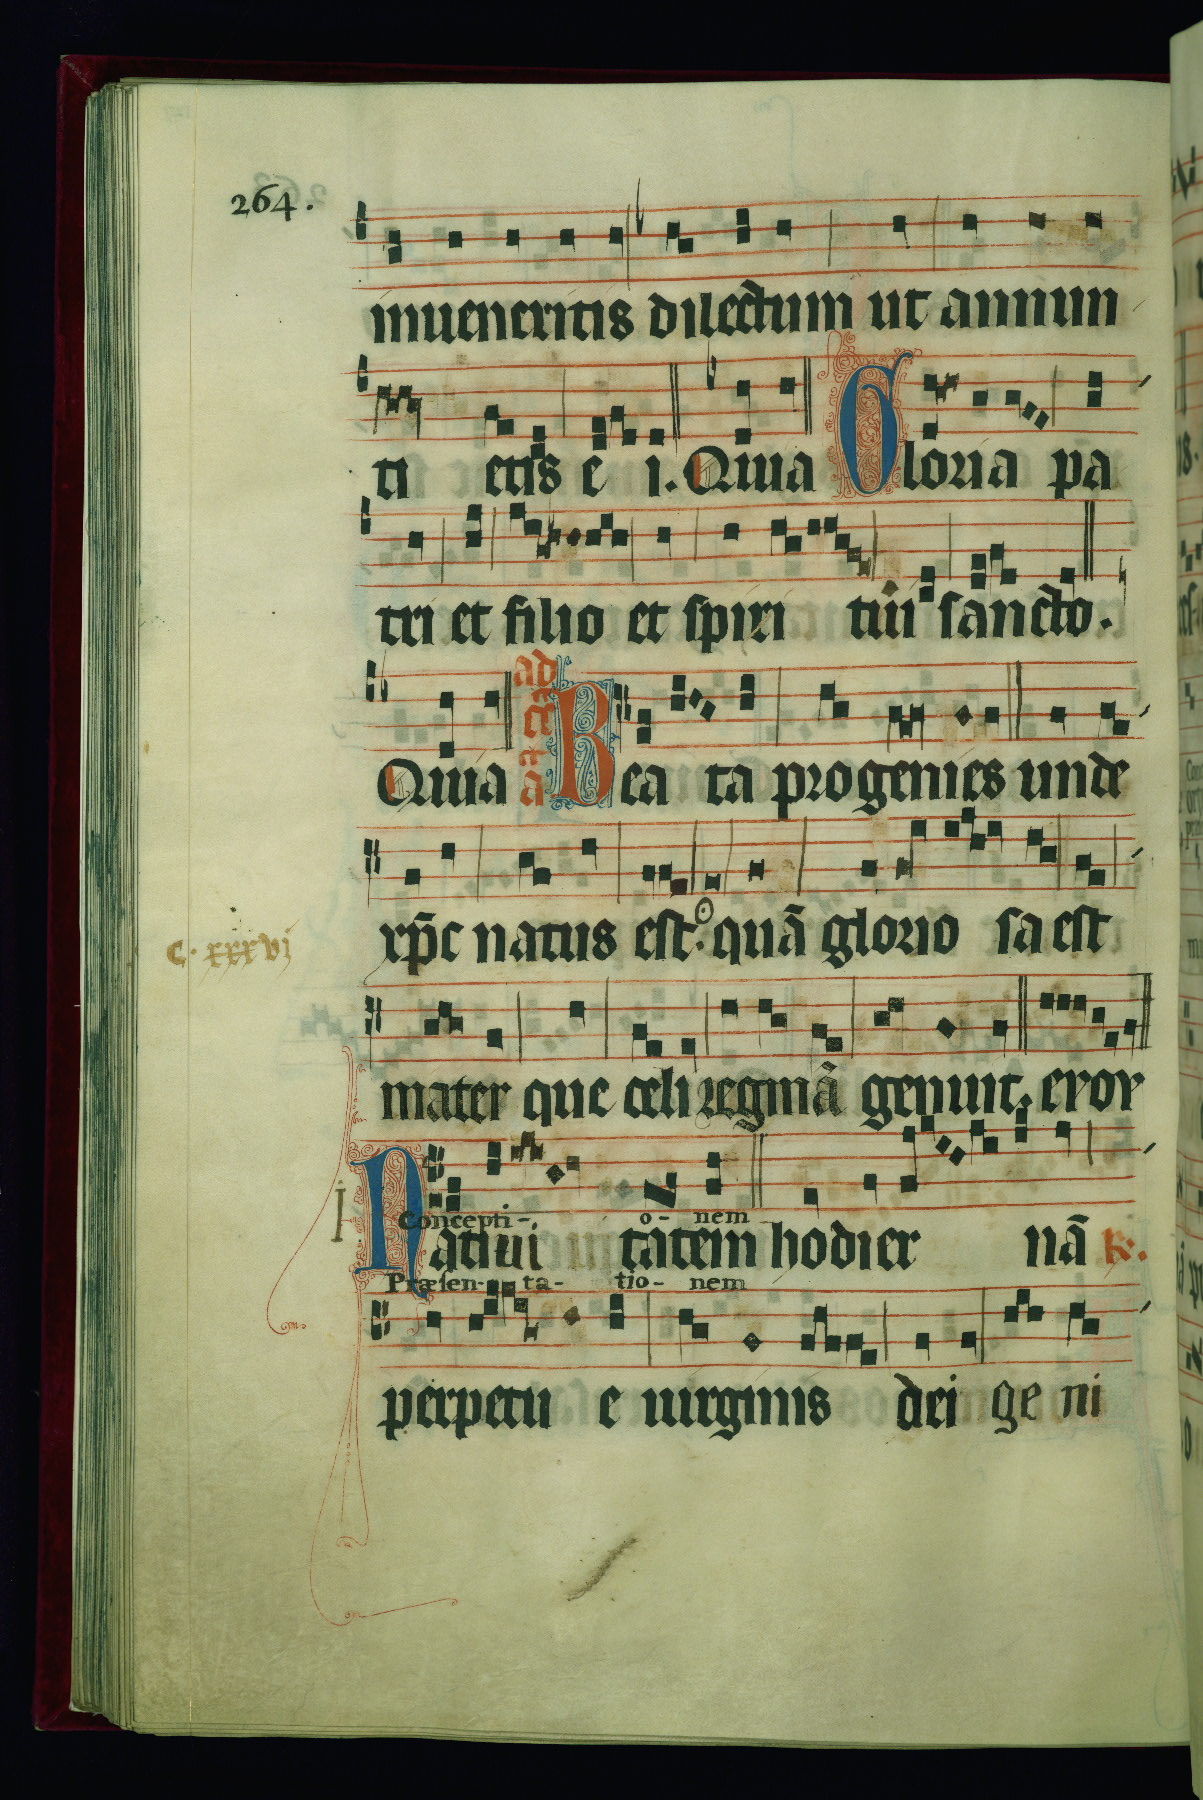 264.
inueneritis dilectum ut annun
ti etis e i. Quia Gloria pa
tri et filio et spiri tui sancto.
Quia ad cā aā Bea ta progenies unde
xp̄c natus est. quā glorio sa est
C. xxxvi
mater que celi reginā genuit. evov
Concepti- o- nem
I Natiui tatem hodier nā R.
Præsen- ta- tio- nem
perpetu e uirginis dei ge ni